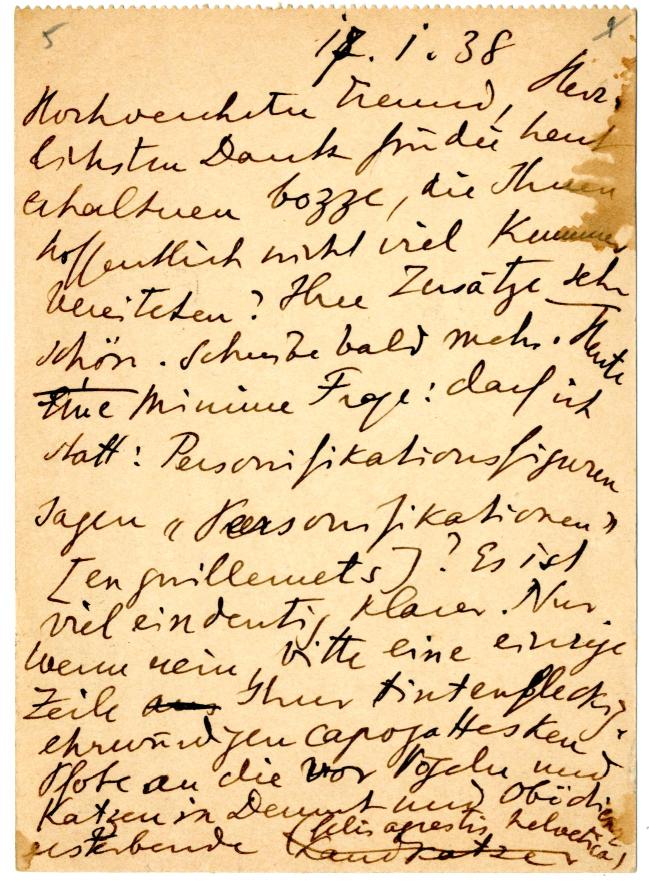 17. I. 38
Hochverehrter Freund, Herz-
lichsten Dank für die heut
erhaltenen bozze, die Ihnen
hoffentlich nicht viel Kummer
bereiteten? Ihre Zusätze sehr
schön. Schreibe bald mehr. Heute
Eine Minime Frage: darf ich
statt: Personifikationsfiguren
sagen "Personifikationen"
[en guillemets]? Es ist
viel eindeutig klarer. Nur
wenn nein, bitte eine einzige
Zeile Ihrer tintenfleckig-
ehrwürdigen capogattesken
Pfote an die vor Vögeln und
Katzen in Demut und Obödienz
ersterbende Landkatze
(felis agrestis helvetica)